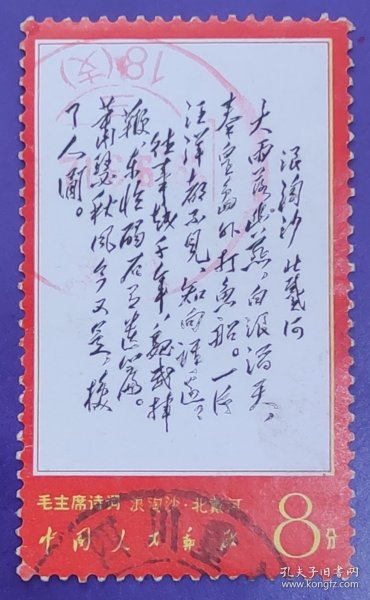 浪淘沙 北戴河
大雨落幽燕，白浪滔天，
秦皇岛外打鱼船。一片
汪洋都不见，知向谁边？
往事越千年，魏武挥
鞭，东临碣石有遗篇。
萧瑟秋风今又是，换
了人间。
毛主席诗词 浪淘沙·北戴河
中国人民邮政
8分
18(支)
四川
孔夫子旧书网